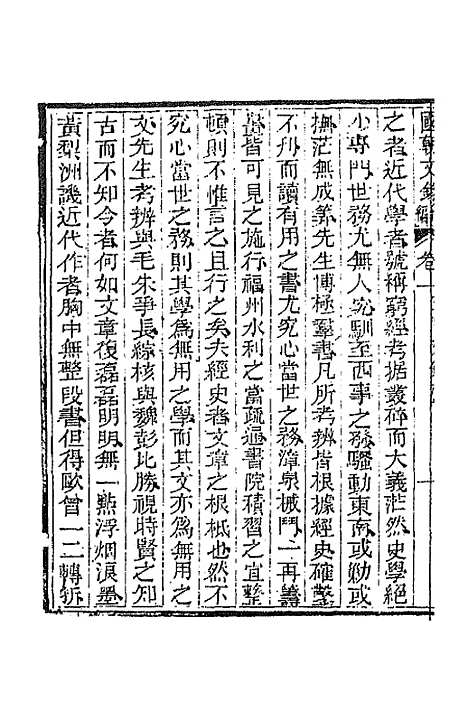 國朝文錄續編 卷一
之者近代學者號稱窮經考据叢碎而大義茫然史學絕
少專門世務尤無人究馴至西事之發騷動東南或勦或
撫茫無成筭先生博極羣書凡所考辨皆根據經史確鑿
不刋而讀有用之書尤究心當世之務漳泉械鬥一再籌
畫皆可見之施行福州水利之當疏通書院積習之宜整
頓則不惟言之且行之矣夫經史者文章之根柢也然不
究心當世之務則其學為無用之學而其文亦為無用之
文先生考辨與毛朱爭長綜核與魏彭比勝視時賢之知
古而不知今者何如文章復磊磊明明無一點浮烟浪墨
黃梨洲譏近代作者胸中無整段書但得歐曾一二轉折